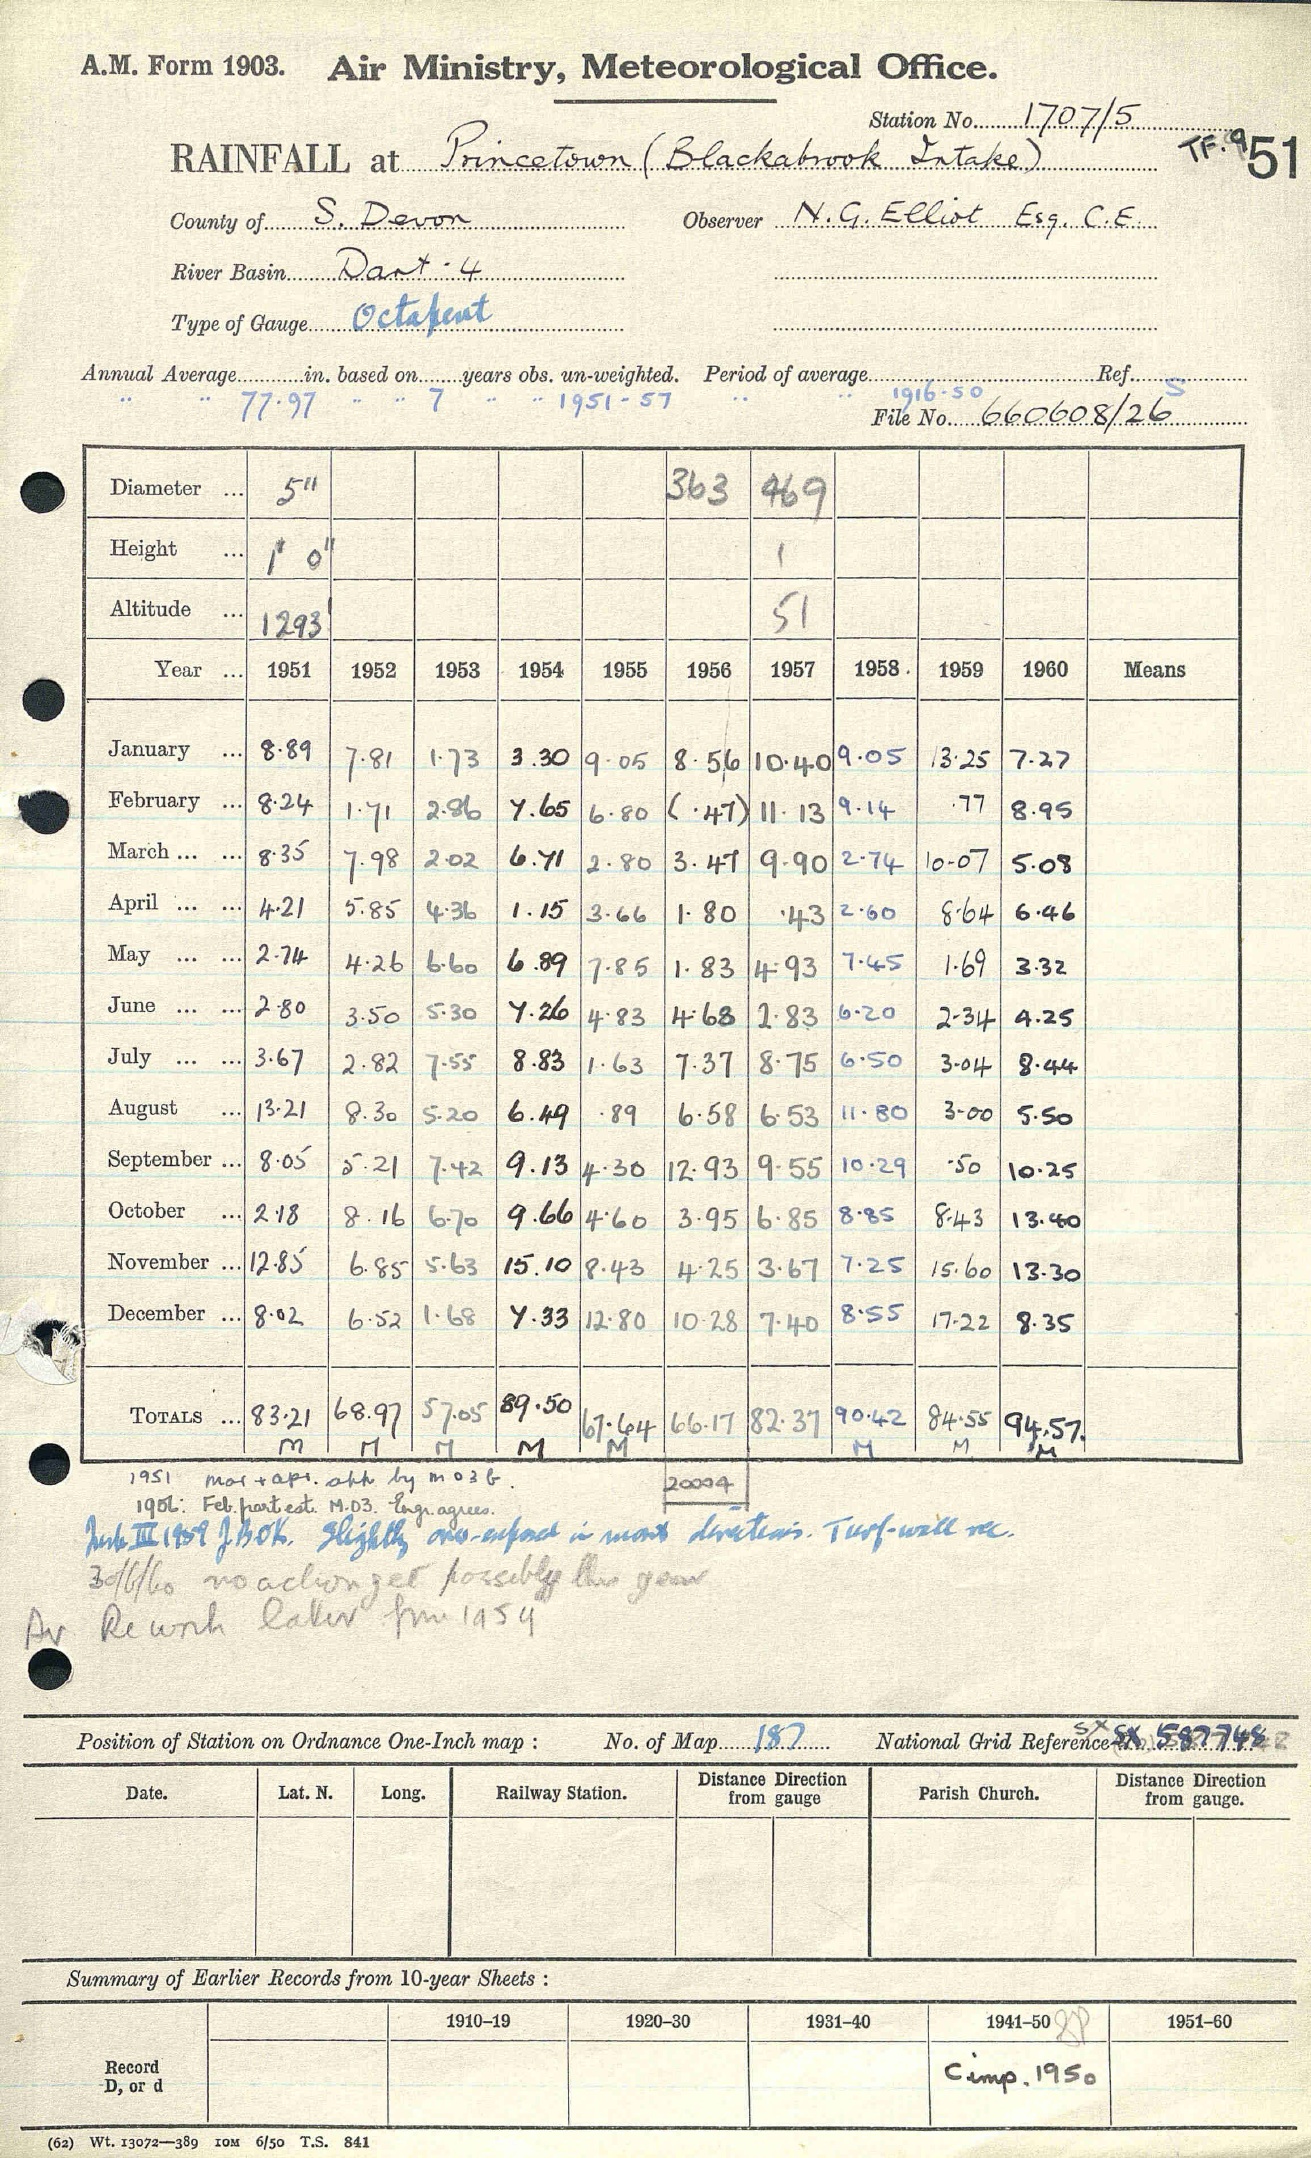 A.M. Form 1903. Air Ministry, Meteorological Office.
Station No. 1707/5
RAINFALL at Princetown (Blackabrook Intake) TF.9 51
County of S. Devon Observer N.G. Elliot Esq. C.E.
River Basin Dart - 4
Type of Gauge Octapent
Annual Average in. based on years obs. un-weighted. Period of average Ref.
" " 77.97 " " 7 " " 1951-57 " " 1916-50 S
File No. 660608/26
Diameter ... 5" 363 469
Height ... 1' 0" 1
Altitude ... 1293' 51
Year ... 1951 1952 1953 1954 1955 1956 1957 1958 1959 1960 Means
January ... 8.89 7.81 1.73 3.30 9.05 8.56 10.40 9.05 13.25 7.27
February ... 8.24 1.71 2.86 7.65 6.80 (.47) 11.13 9.14 .77 8.95
March ... ... 8.35 7.98 2.02 6.71 2.80 3.47 9.90 2.74 10.07 5.08
April ... ... 4.21 5.85 4.36 1.15 3.66 1.80 .43 2.60 8.64 6.46
May ... ... 2.74 4.26 6.60 6.89 7.85 1.83 4.93 7.45 1.69 3.32
June ... ... 2.80 3.50 5.30 7.26 4.83 4.68 2.83 6.20 2.34 4.25
July ... ... 3.67 2.82 7.55 8.83 1.63 7.37 8.75 6.50 3.04 8.44
August ... 13.21 8.30 5.20 6.49 .89 6.58 6.53 11.80 3.00 5.50
September ... 8.05 5.21 7.42 9.13 4.30 12.93 9.55 10.29 .50 10.25
October ... 2.18 8.16 6.70 9.66 4.60 3.95 6.85 8.85 8.43 13.40
November ... 12.85 6.85 5.63 15.10 8.43 4.25 3.67 7.25 15.60 13.30
December ... 8.02 6.52 1.68 7.33 12.80 10.28 7.40 8.55 17.22 8.35
TOTALS ... 83.21 68.97 57.05 89.50 67.64 66.17 82.37 90.42 84.55 94.57
M M M M M M M M
1951 mar + apr. by m 03 b. 20004
1956: Feb. part est. M.O3. Engr. agrees.
III 1959 Slightly over-exposed in most directions. Turf-wall rec.
30/6/60 no action yet possibly this year
Av Rework later from 1954
Position of Station on Ordnance One-Inch map : No. of Map 187 National Grid Reference SX 587748
Date. Lat. N. Long. Railway Station. Distance Direction from gauge Parish Church. Distance Direction from gauge.
Summary of Earlier Records from 10-year Sheets :
1910–19 1920–30 1931–40 1941–50 1951–60
Record
D, or d
C imp. 1950
(62) Wt. 13072—389 10M 6/50 T.S. 841